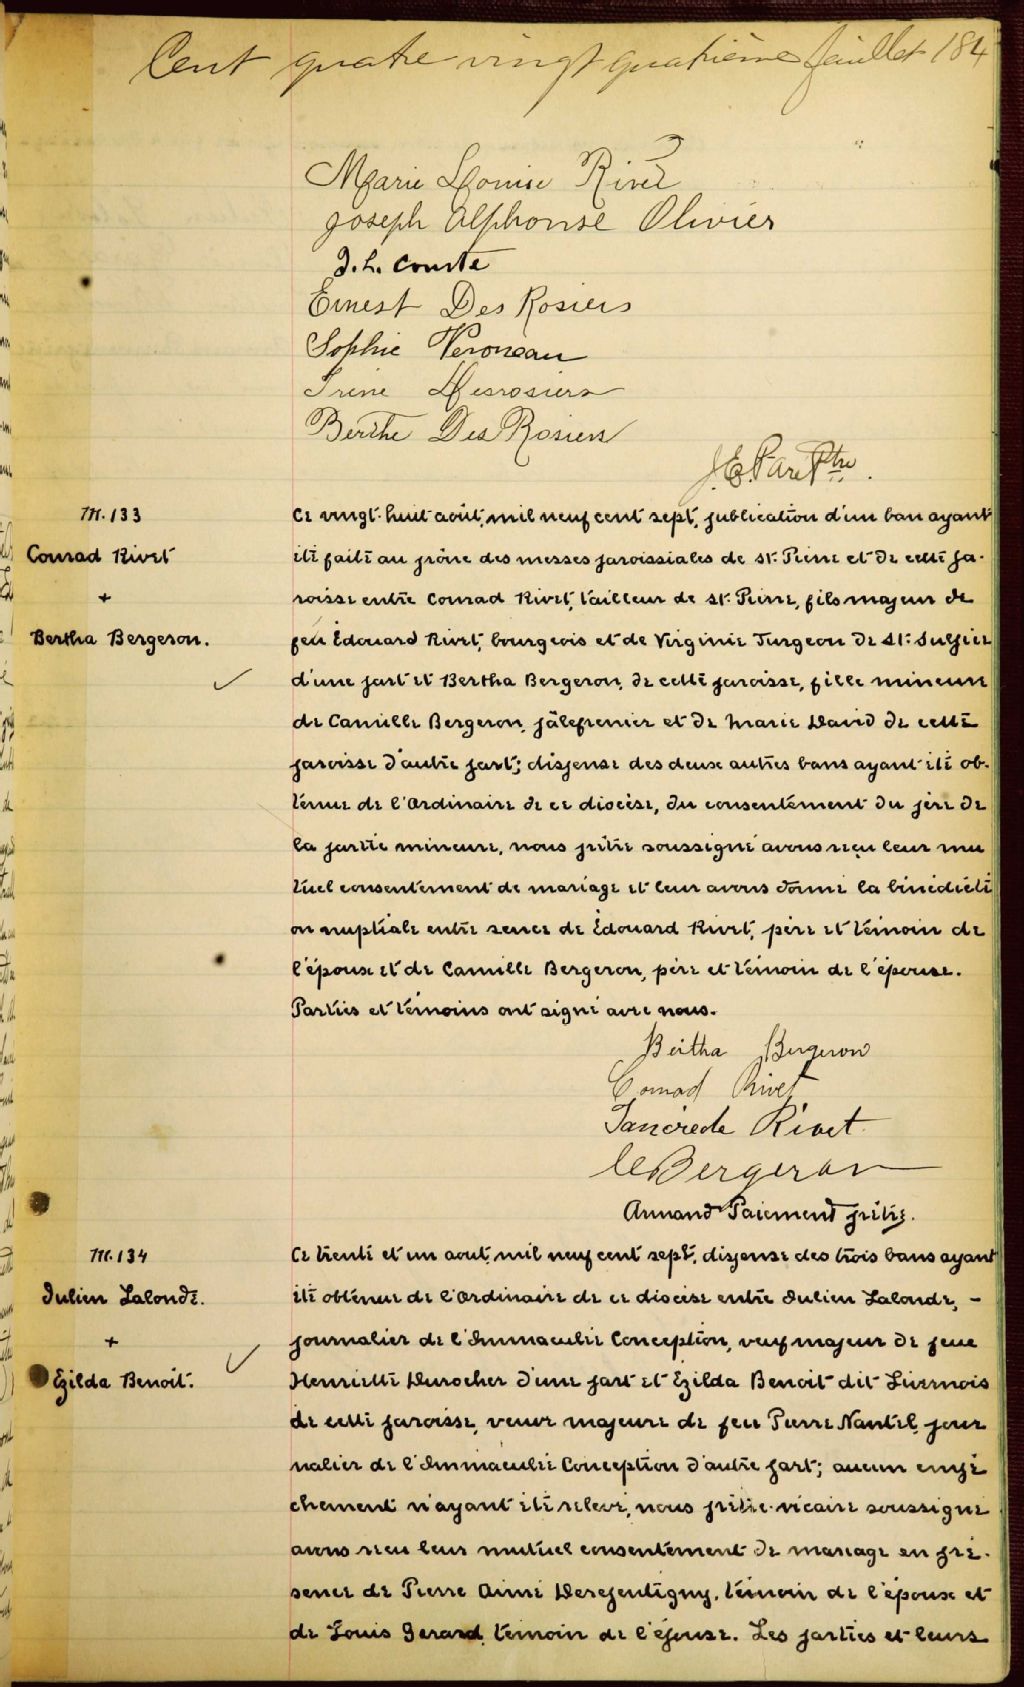 Cent quatre vingt quatrième feuillet 184
Marie Louise Rivet
Joseph Alphonse Olivier
J. L. Courte
Ernest Des Rosiers
Sophie Veroneau
Irène Desrosiers
Berthe Des Rosiers
J. E. Paré Ptre.
M. 133
Conrad Rivet
+
Bertha Bergeron.
Ce vingt-huit août, mil neuf cent sept, publication d'un ban ayant
été faite au prône des messes paroissiales de St-Pierre et de cette pa-
roisse entre Conrad Rivet, tailleur de St-Pierre, fils majeur de
feu Édouard Rivet, bourgeois et de Virginie Turgeon de St-Sulpice
d'une part et Bertha Bergeron, de cette paroisse, fille mineure
de Camille Bergeron, pâlefrenier et de Marie David de cette
paroisse d'autre part; dispense des deux autres bans ayant été ob-
tenue de l'Ordinaire de ce diocèse, du consentement du père de
la partie mineure, nous prêtre soussigné avons reçu leur mu
tuel consentement de mariage et leur avons donné la bénédicti
on nuptiale entre sence de Édouard Rivet, père et témoin de
l'époux et de Camille Bergeron, père et témoin de l'épouse.
Parties et témoins ont signé avec nous.
Bertha Bergeron
Conrad Rivet
Tancrède Rivet
C Bergeron
Armand Paiement prêtre.
M. 134
Julien Lalonde.
+
Ezilda Benoit.
Ce trente et un aout, mil neuf cent sept, dispense des trois bans ayant
été obtenue de l'Ordinaire de ce diocèse entre Julien Lalonde, -
journalier de l'Immaculée Conception, veuf majeur de feue
Henriette Durocher d'une part et Ezilda Benoit dit Livernois
de cette paroisse, veuve majeure de feu Pierre Nantel, jour
nalier de l'Immaculée Conception d'autre part; aucun empê
chement n'ayant été relevé, nous prêtre-vicaire soussigné
avons reçu leur mutuel consentement de mariage en pré-
sence de Pierre Aimé Derepentigny, témoin de l'époux et
de Louis Gerard, témoin de l'épouse. Les parties et leurs